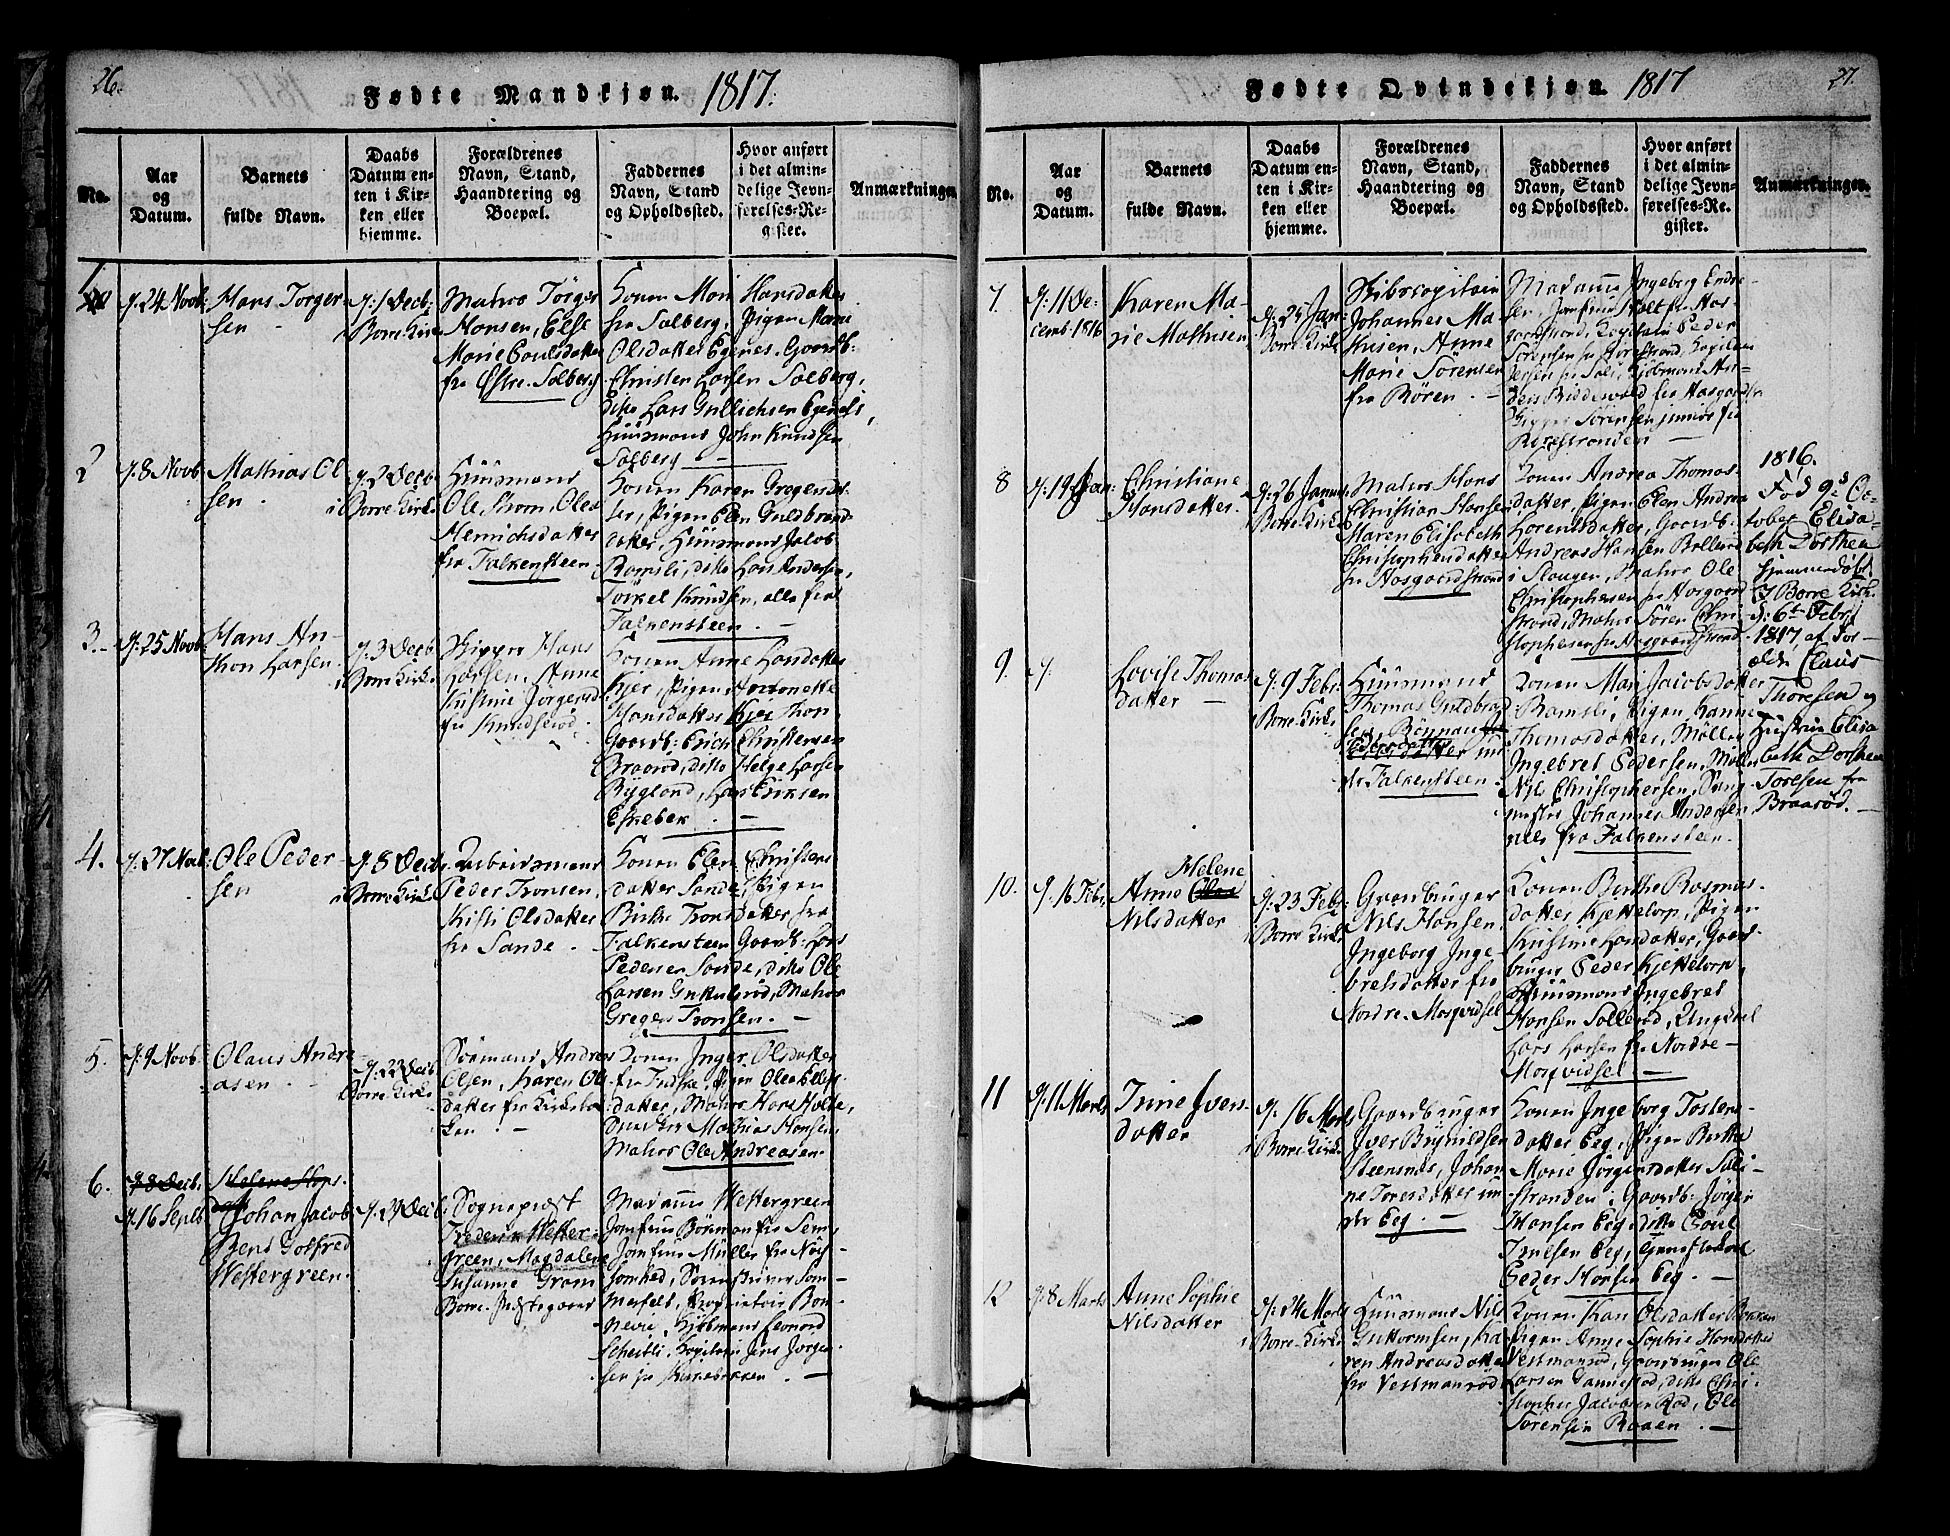 26.
Fødte Mandkjøn. 1817.
No.
Aar
og
Datum.
Barnets
fulde Navn.
Daabs
Datum en-
ten i Kir-
ken eller
hjemme.
Forældrenes
Navn, Stand,
Haandtering og
Boepæl.
Faddernes
Navn, Stand
og Opholdssted.
Hvor anført
i det almin-
delige Jevn-
førelses-Re-
gister.
Anmærkninger.
1
24 Novb:
Hans Torger
sen
1 Decb:
i Borre Kirke
Matros Törger
Hansen, Else
Marie Poulsdatter
fra Østre Solberg
Konen Mari Hansdatter
fra Solberg, Pigen Marie
Olsdatter Egenes, Gaardb:
Christen Larsen Solberg,
ditto Lars Gullichsen Egenes,
Huusmand John Knudsen
Solberg
2
8 Novb
Mathias Ol
sen
2 Decb
i Borre Kirke
Huusmand
Ole Strom, Olea
Henrichsdatter
fra Falkensteen
Konen Karen Gregerds-
ter, Pigen Elen Guldbrands
datter, Huusmand Jacob
Ramsli, ditto Lars Andersen,
Törkel Knudsen, alle fra
Falkensteen
3.
25 Novb
Hans An-
thon Larsen
3 Decb
i Borre Kirke
Skipper Hans
Larsen, Anne
Kristine Jörgensd
fra Knudsröd
Konen Anne Larsdatter
Kjær, Pigen Antonette
Hansdatter Kjær Thon
Gaardb: Erich Christensen
Braaröd, ditto Helge Larsen
Ryglond, Lars Eriksen
Eskebek
4.
27 Novb:
Ole Peder
sen
8 Decb
i Borre Kirke
Arbeidsmand
Peder Tronsen,
Kisti Olsdatter
fra Sande
Konen Elen Christens
datter Sande, Pigen
Birthe Tronsdatter fra
Falkensteen Gaardb: Lars
Pedersen Sande, ditto Ole
Larsen Gnkulsröd, Matros
Greger Tronsen
5.
9 Novb
Olaus Andre
asen
22 Decb
i Borre Kirke
Sömand Andreas
Olsen, Karen Ols
datter fra Kirkebak
ken
Konen Inger Olsdatter
fra Falske, Pigen Olea Ellefs
datter, Matros Hans Holte,
Snedker Mathias Hansen,
Matros Ole Andreasen
6.
8 Decb.
Helene Hans
datter
16 Septb
Johan Jacob
Bent Gotfred
Westergreen
27 Decb
Sogneprost
Frederik Wester-
green, Magdalene
Susanne Gram
Borre Præstegaard
Madame Westergreen
Jomfrue Börmand fra Sem
Jomfrue Müller fra Nøs-
somhed, Sorenskriver Som-
merfelt, Proprietair Bon-
nevie, Kjöbmand Leonard
Scheitli, Kapitain Jens Jörgen
sen fra Kirkebakken

27.
Fødte Qvindekjøn. 1817
No.
Aar
og
Datum.
Barnets
fulde Navn.
Daabs
Datum en-
ten i Kir-
ken eller
hjemme.
Forældrenes
Navn, Stand,
Haandtering og
Boepæl.
Faddernes
Navn, Stand
og Opholdssted.
Hvor anført
i det almin-
delige Jevn-
førelses-Re-
gister.
Anmærkninger.
7.
11 De-
cemb. 1816
Karen Ma-
rie Mathisen
25 Jan
Borre Kirke
Skibscapitain
Johannes Ma-
thisen, Anne
Marie Sörensen
fra Bören
Madame Ingeborg Endre-
sen, Jomfrue Holt fra Aas-
gaardstrand, Kapitain Peder
Sörensen fra Horrestrand, Kapitain
Kjöbmand An-
ders Riddervold fra Aasgaardstr
Sörensen junior fra
Borrestranden
8
19 Jan:
Christiane
Hansdatter
26 Januar
Borre Kirke
Matros Hans
Christian Hansen
Maren Elisabeth
Christophersdatter
fra Aasgaardstrand
Konen Andrea Thomas-
datter, Pigen Elen Andrea
Lorentsdatter, Gaardb:
Andreas Hansen Bollerud
i Slaugen, Matros Ole
Christophersen fra Aasgaard
strand, Matros Sören Chri-
stophersen fra Aasgaardstrand
1816.
Fod 9d Oc-
tober Elisa-
beth Dorthea
hjemmedøbt
i Borre Kirk
d. 6te Febr
1817, af For-
ældr Claus
Thoresen og
Hustrue Elisa
beth Dorthea
Toresen fra
Braaröd.
9.
Lovise Thomas
datter
9 Febr:
Borre Kirk
Huusmand
Thomas Guldbrand
sen,
Pedersdatter un
der Falkensteen
Konen Mari Jacobsdatter
Ramsli, Pigen Hanne
Thomasdatter, Möller
Ingebret Pedersen, Möller
Nils Christophersen, Ung-
Johannes Andersen
alle fra Falkensteen
10.
16 Febr
Helene
Anne Olea
Nilsdatter
23 Febr
i Borre Kirk
Gaardbruger
Nils Hansen,
Ingeborg Inge-
bretsdatter fra
Nordre Mosvidsel
Konen Berthe Rasmus-
datter Kjettelorp, Pigen
Kristine Larsdatter, Gaard-
bruger Peder Kjettelorp
Huusmand Ingebret
Hansen Solleröd, Ungkarl
Lars Larsen fra Nordre
Mosvidsel
11
11 Marts
Trine Iver-
datter
16 Marts
i Borre Kirk
Gaardbruger
Iver Brynildsen
Steensnes, Johan
ne Toresdatter un
der Eeg
Konen Ingeborg Tostens-
datter Eeg, Pigen Berthe
Marie Jörgensdatter Soli-
stranden, Gaardb: Jörgen
Hansen Eeg, ditto Poul
Truelsen Eeg,
Peder Hansen Eeg
12
8 Marts
Anne Sophie
Nilsdatter
24 Marts
i Borre Kirk
Huusmand Nils
Guttormsen, Ka
ren Andreasdatter
fra Vestmanröd
Konen Kari Olsdatter
Pigen Anne Sophie Hansdatter
Vestmanröd, Gaardbruger Ole
Larsen Sanneröd, ditto Chri-
stopher Jacobsen Röd, Ole
Sörensen Roaen